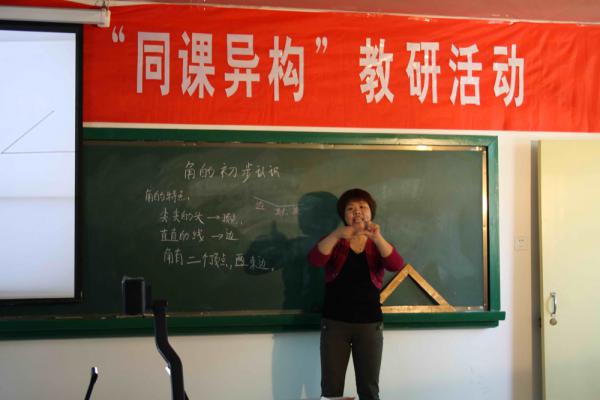 “同课异构”教研活动
角的初步认识
角的特点:
尖尖的头→顶点
直直的线→边
角有一个顶点,两条边。
边